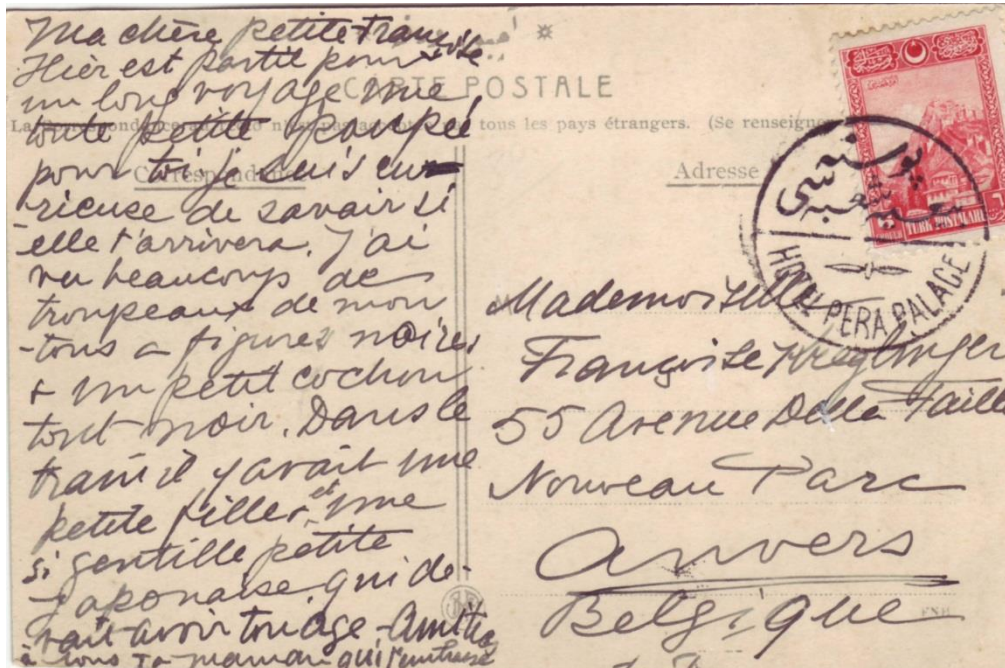 Ma chère petite Fran
çoise
Hier est partit pour
un long voyage une
toute petite poupée
pour toi je suis cu-
rieuse de savoir si
elle t'arrivera. J'ai
vu beaucoups de
troupeaux de mou-
-tons a figures noires
+ un petit cochon
tout noir. Dans le
train il y avait une
petite fille et une
si gentille petite
japonaise qui de-
vait avoir ton age
à tous ta maman qui t'embrasse
CARTE POSTALE
tous les pays étrangers. (Se renseigner
Correspondance
Adresse
TURK POSTALARI
HOTEL PERA PALACE
Mademoiselle
Françoise Kreglinger
55 Avenue Della Faille
Nouveau Parc
Anvers
Belgique